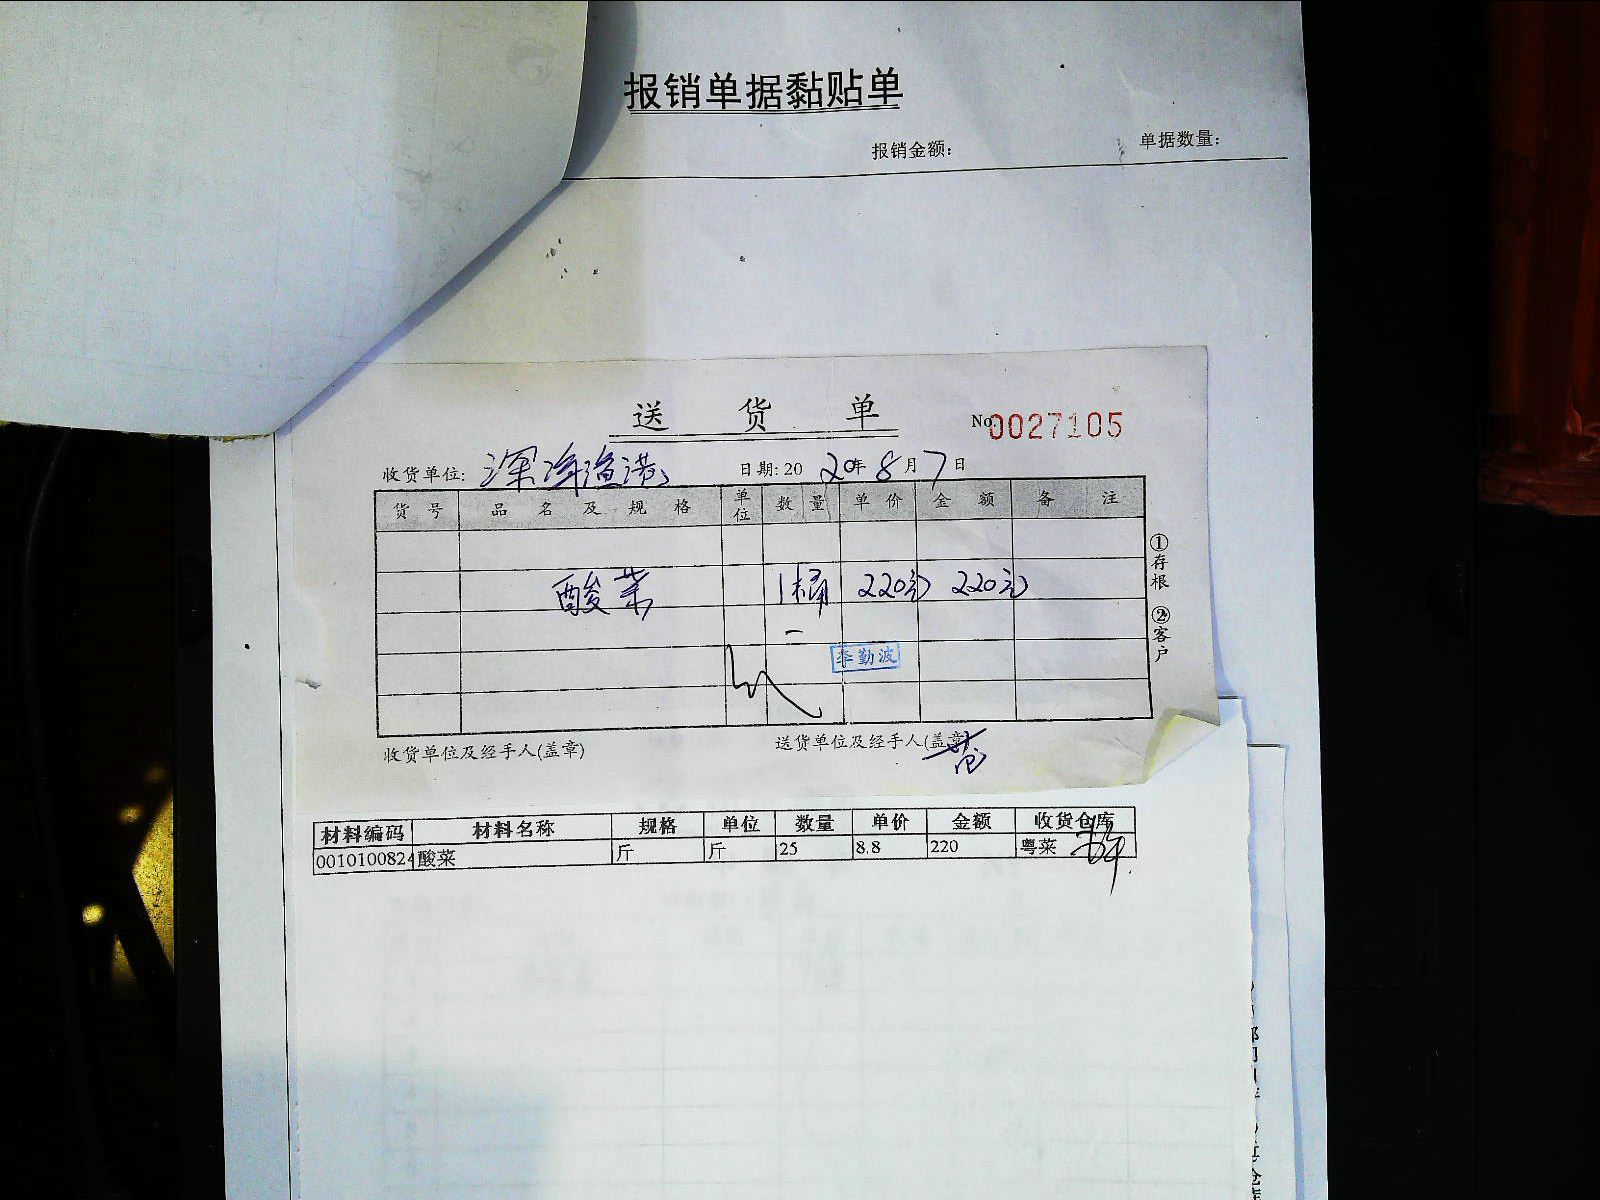 报销单据黏贴单
报销金额: 单据数量:
送货单 No 0027105
收货单位: 深海渔港 日期: 2020年8月7日
货号 品名及规格 单位 数量 单价 金额 备注
酸菜 1桶 220元 220元
李勤波
①存根 ②客户
收货单位及经手人(盖章) 送货单位及经手人(盖章)
材料编码 材料名称 规格 单位 数量 单价 金额 收货仓库
0010100824 酸菜 斤 斤 25 8.8 220 粤菜